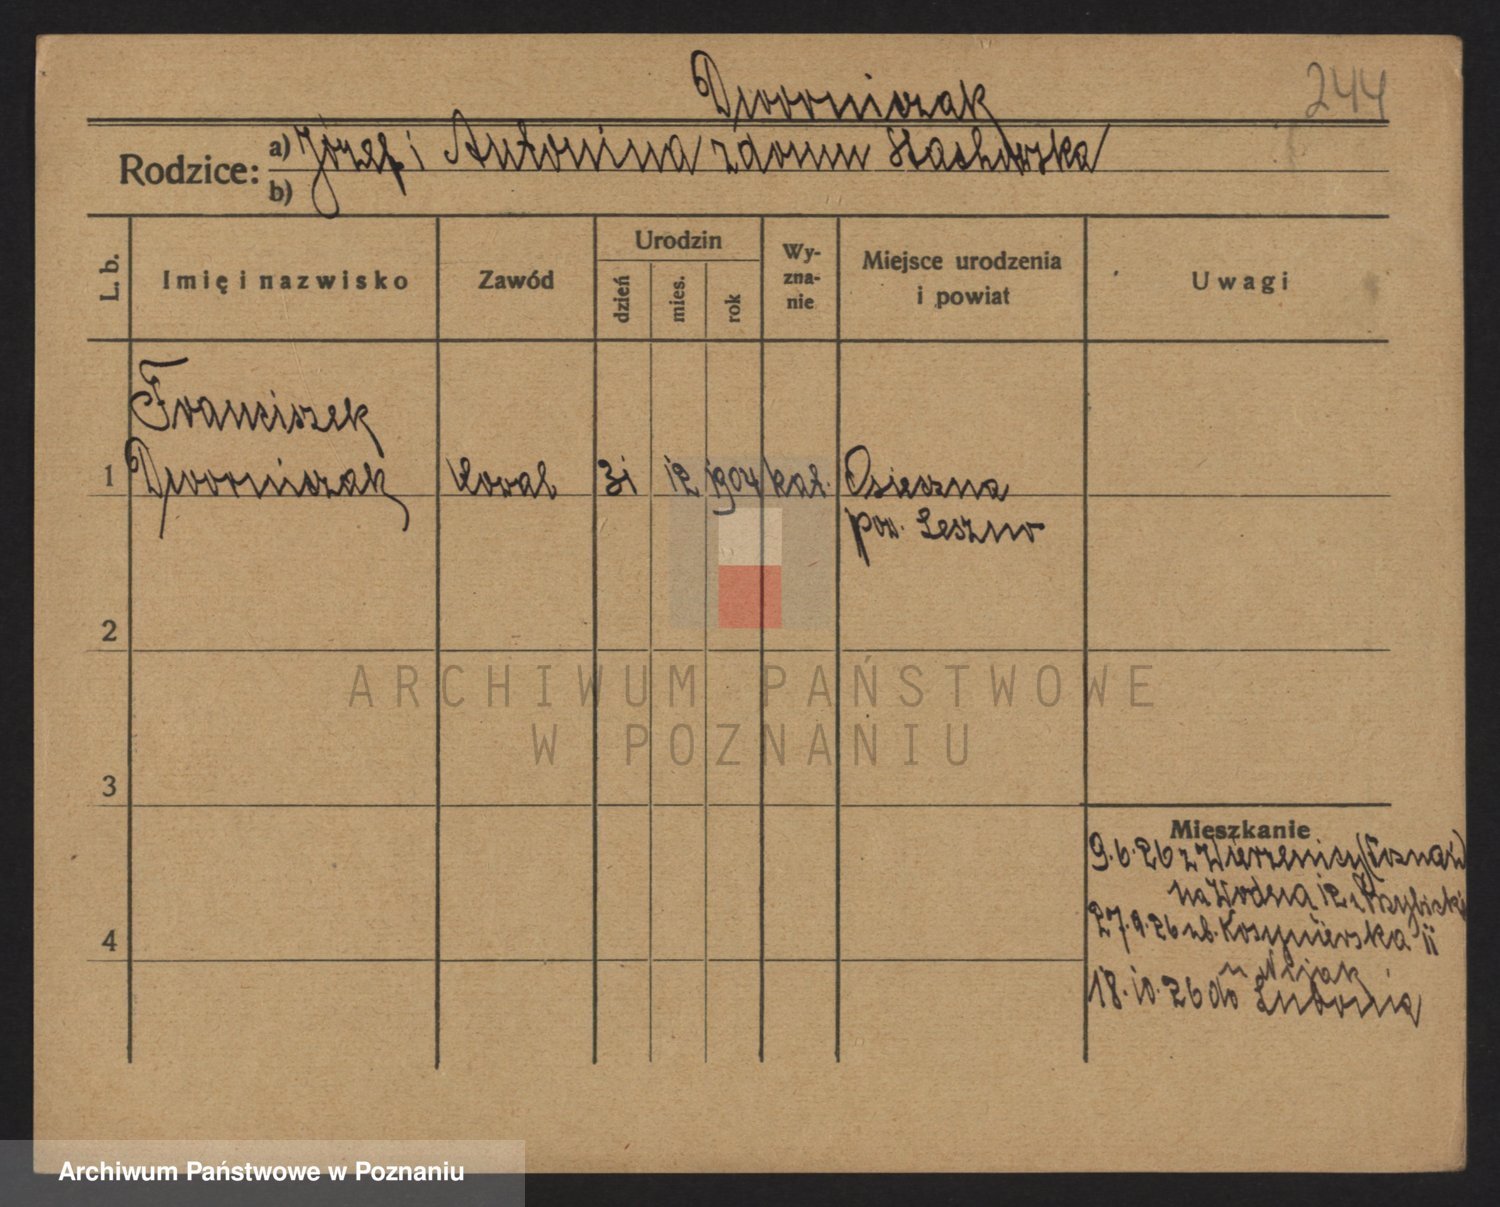 Dworniczak
244
Rodzice: a) Józef i Antonina z domu Stachowska
b)
L. b.
Imię i nazwisko
Zawód
Urodzin
dzień
mies.
rok
Wy-
zna-
nie
Miejsce urodzenia
i powiat
Uwagi
Franciszek
1 Dworniczak kowal 31 12 1904 kat. Osieczna
pow. Leszno
2
3
4
Mieszkanie
9.6.26 z Wierzenicy (Poznań)
na Wodną 12
27.9.26 ul. Kosynierska 11
18.10.26 do Lubonia
ARCHIWUM PAŃSTWOWE
W POZNANIU
Archiwum Państwowe w Poznaniu